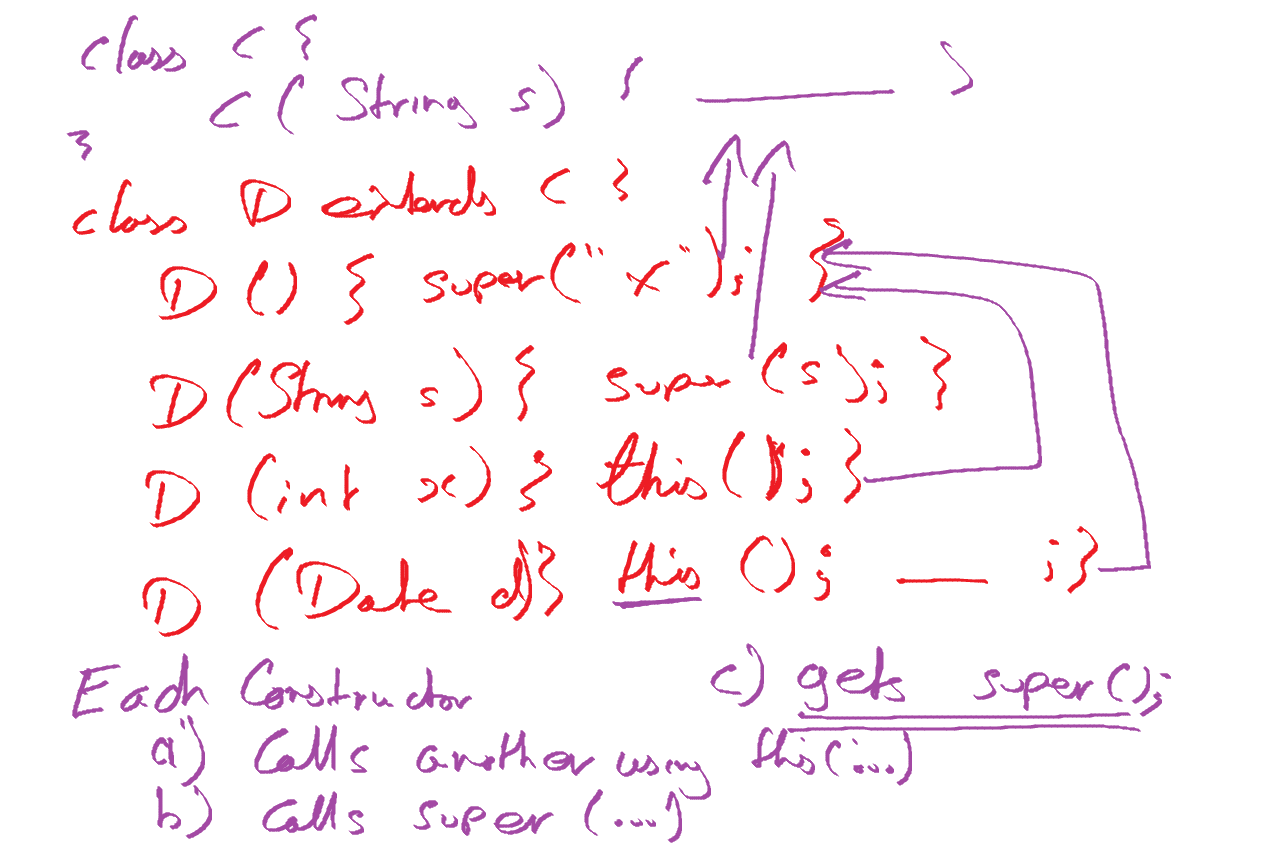 class C {
C ( String s ) { ______ }
}
class D extends C {
D () { super("x"); }
D (String s) { super (s); }
D (int x) } this(); }
D (Date d)} this (); ___ ; }
Each Constructor
c) gets super();
a) Calls another using this(...)
b) Calls super (...)